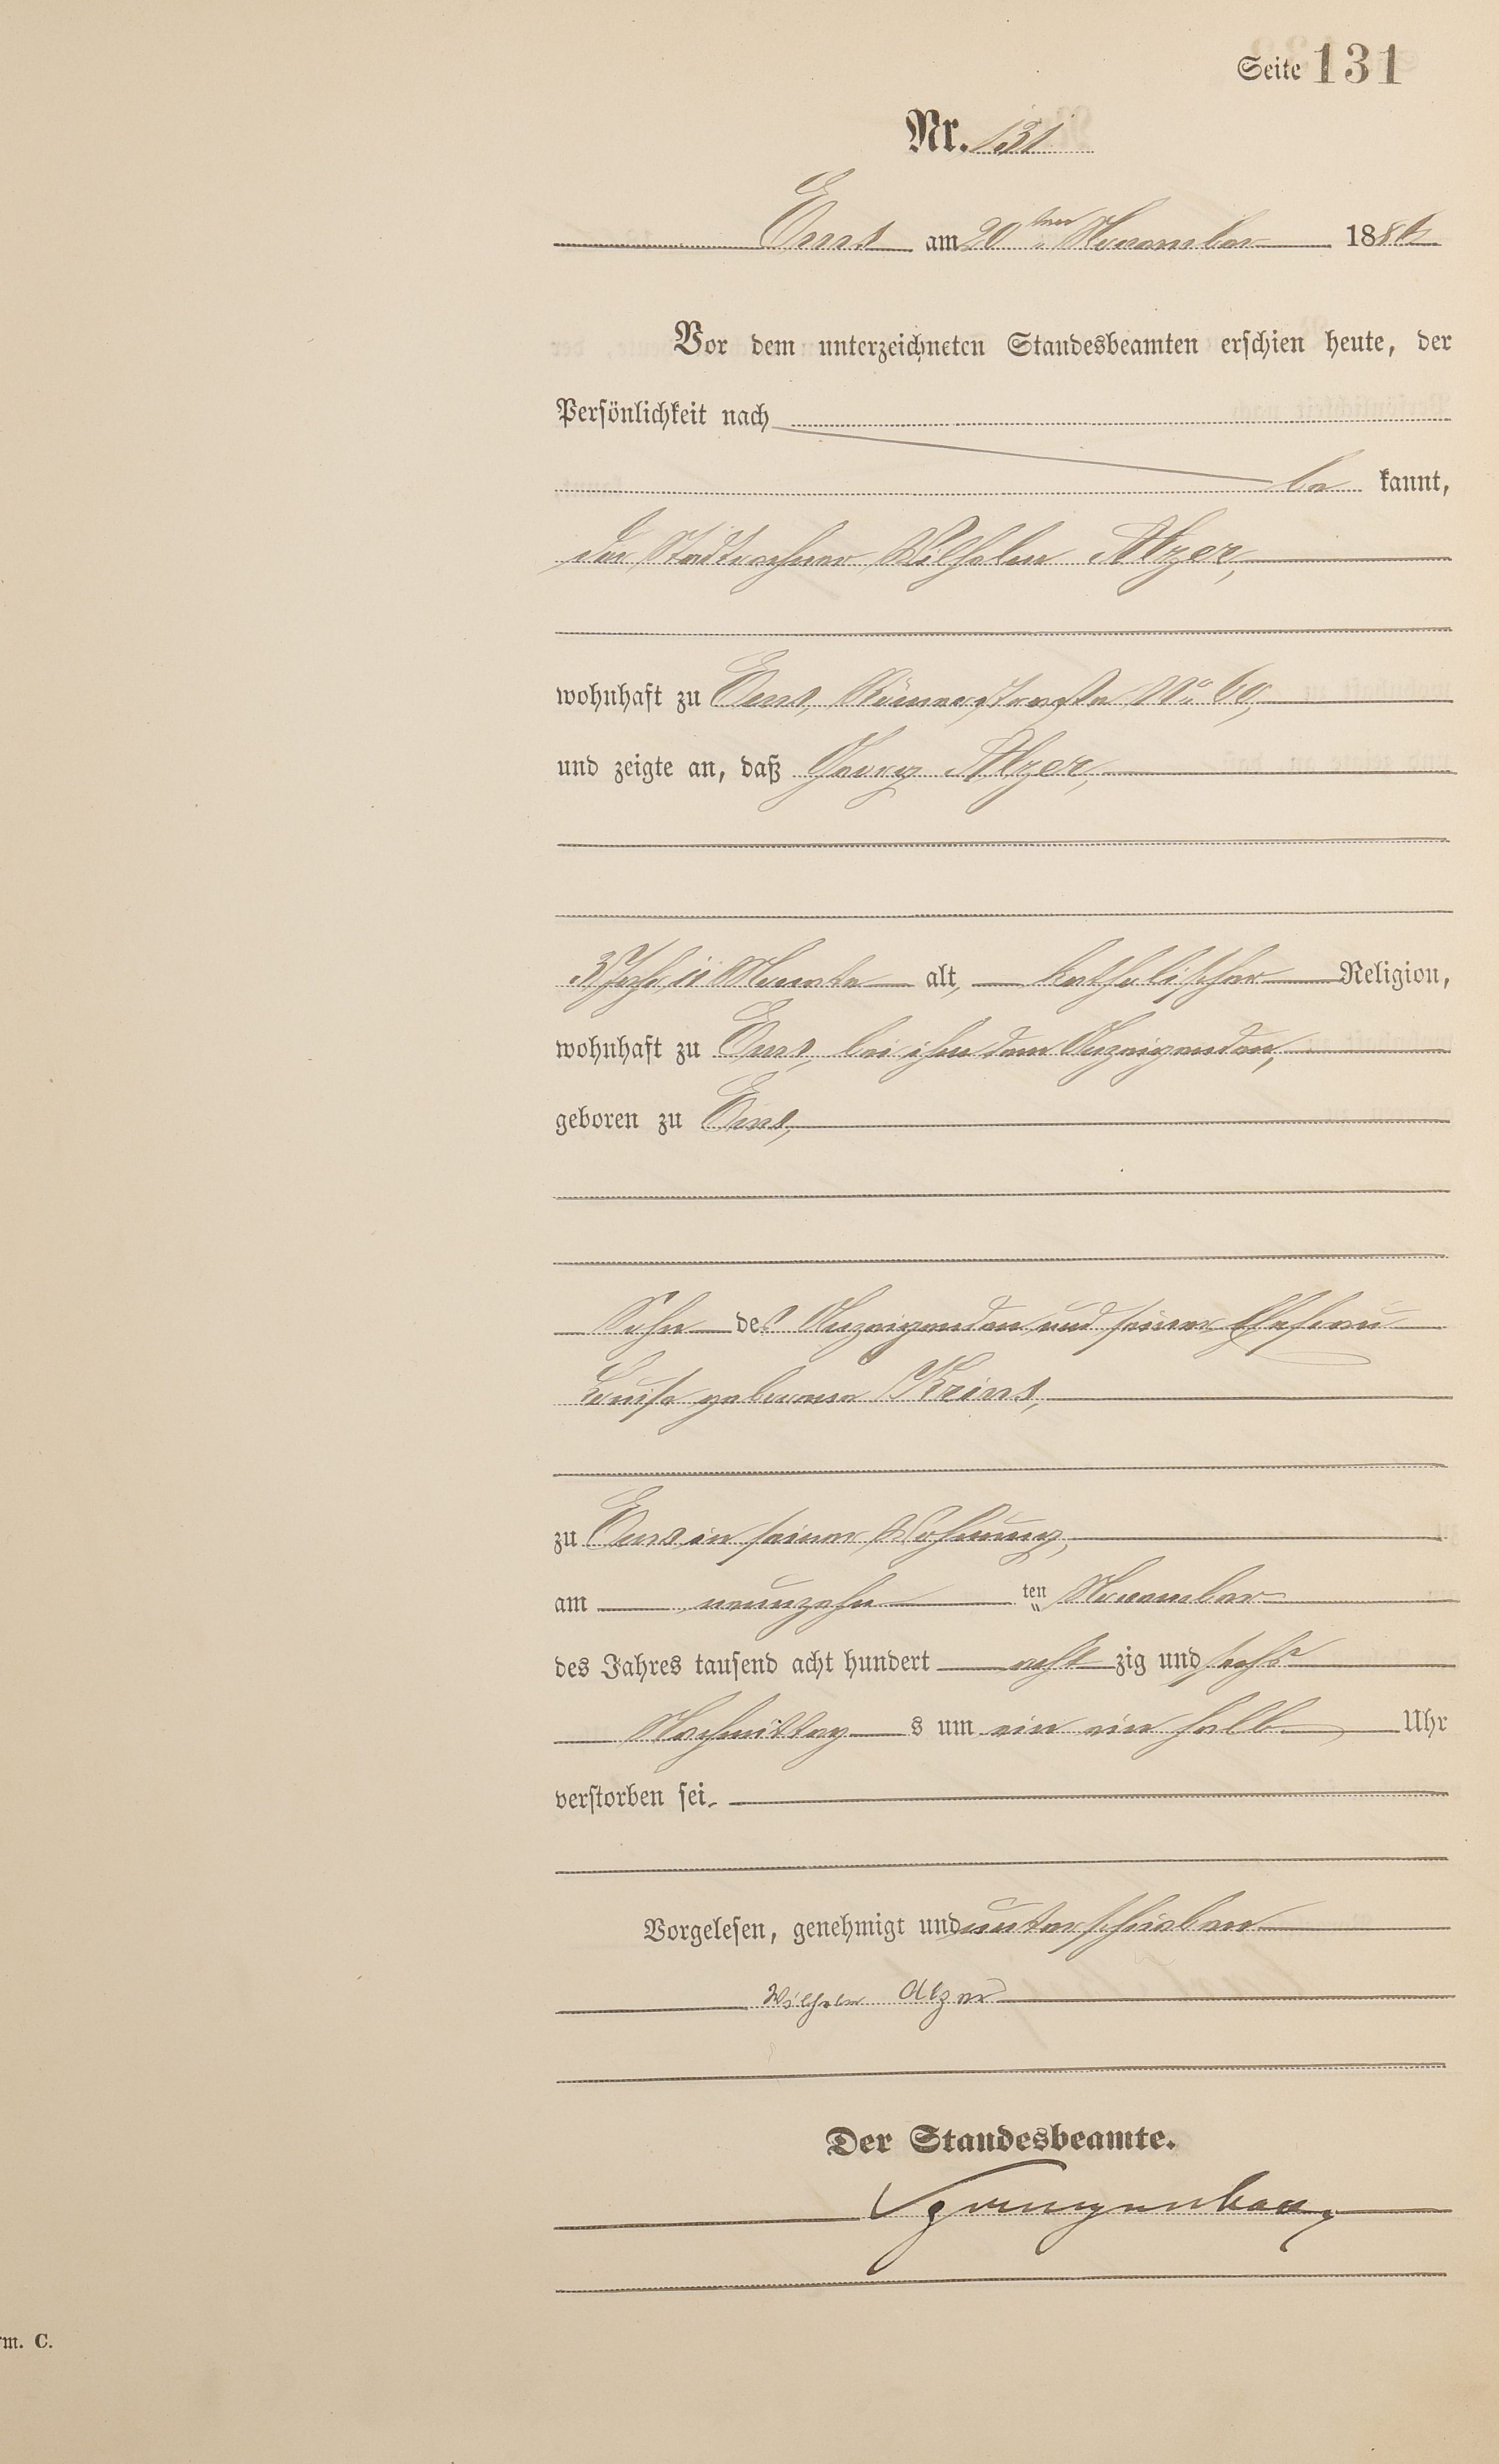 Seite 131
Nr. 131
Ems am 20ten November 1886
Vor dem unterzeichneten Standesbeamten erschien heute, der
Persönlichkeit nach
be kannt,
der Stadtrechner Wilhelm Alzer,
wohnhaft zu Ems, Römerstraße No. 60,
und zeigte an, daß Georg Alzer,
3 Jahr 11 Monate alt, katholischer Religion,
wohnhaft zu Ems, bei ihm dem Anzeigenden,
geboren zu Ems,
Sohn des Anzeigenden und seiner Ehefrau
Louise geborene
zu Ems in seiner Wohnung,
am neunzehn ten November
des Jahres tausend acht hundert acht zig und sechs
Nachmittag s um ein ein halb Uhr
verstorben sei.
Vorgelesen, genehmigt und unterschrieben
Wilhelm Alzer
Der Standesbeamte.
rm. C.